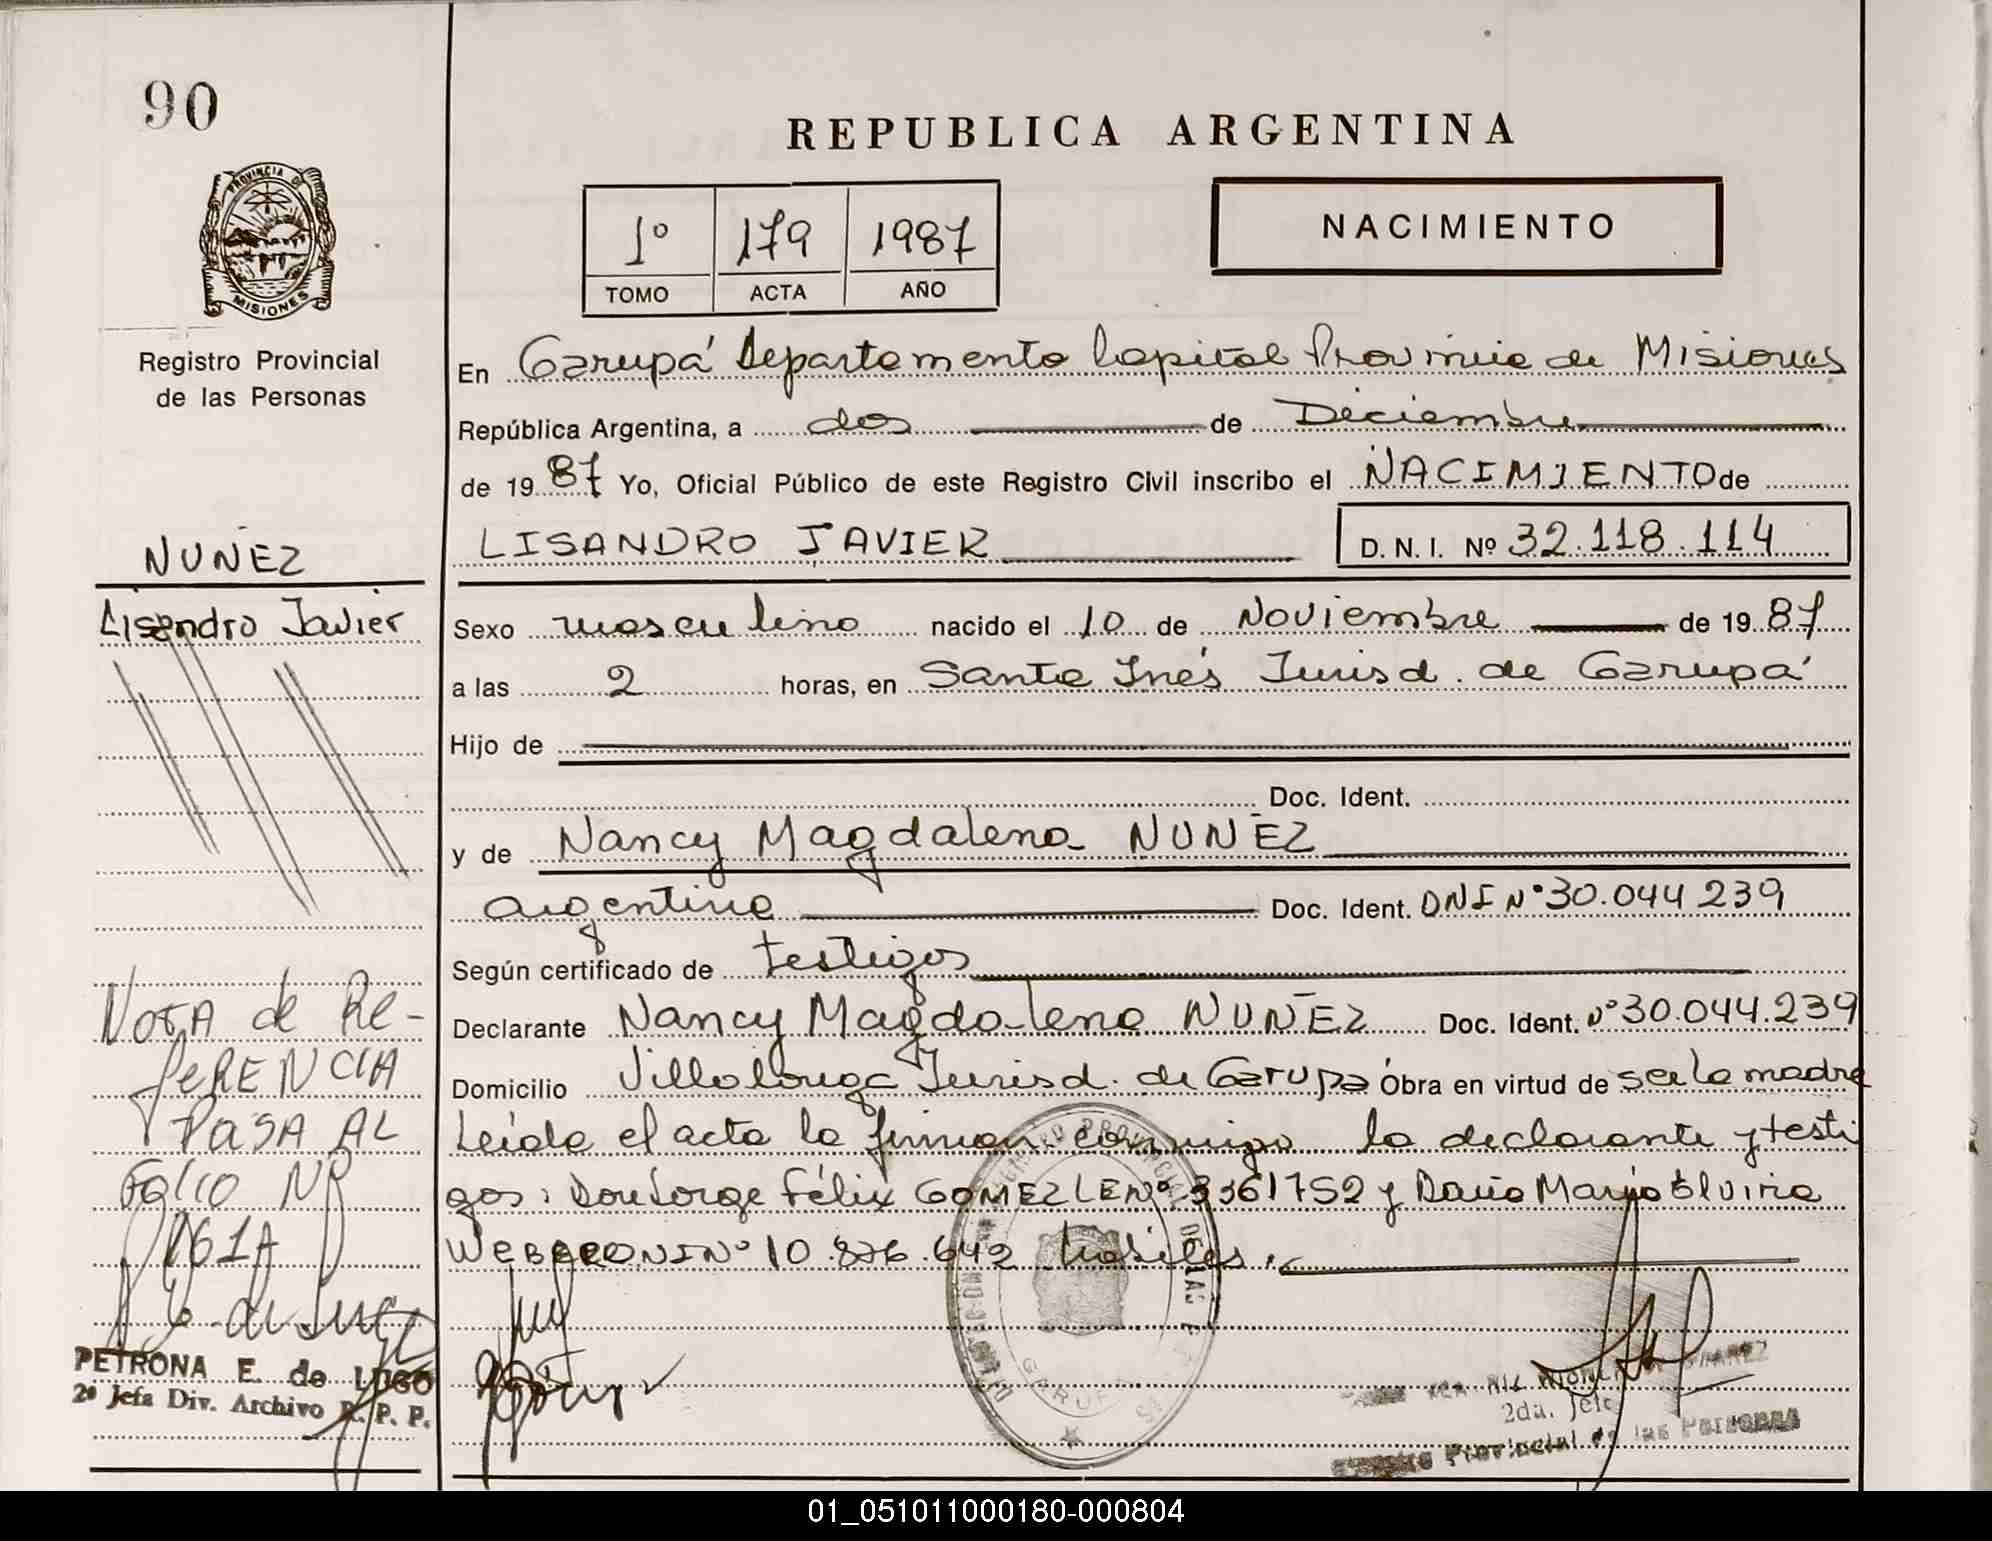 90
REPUBLICA ARGENTINA
PROVINCIA DE
MISIONES
1º 179 1987
TOMO ACTA AÑO
NACIMIENTO
Registro Provincial
de las Personas
En Garupá Departamento Capital Provincia de Misiones
República Argentina, a dos de Diciembre
de 1987 Yo, Oficial Público de este Registro Civil inscribo el NACIMIENTO de
LISANDRO JAVIER D. N. I. Nº 32.118.114
NUÑEZ
Lisandro Javier
Sexo masculino nacido el 10 de Noviembre de 1987
a las 2 horas, en Santa Inés Jurisd. de Garupá
Hijo de
Doc. Ident.
y de Nancy Magdalena NUÑEZ
argentina Doc. Ident. DNI Nº 30.044.239
Según certificado de testigos
Declarante Nancy Magdalena NUÑEZ Doc. Ident. Nº 30.044.239
Domicilio Villalonga Jurisd. de Garupá Obra en virtud de ser la madre
Leída el acta la firman conmigo la declarante y testi
gos: Don Jorge Félix GOMEZ LE Nº 3361752 y María Elvira
WEBER DNI Nº 10.876.642 hábiles.
NOTA de Re-
feRENCIA
PASA AL
Folio Nº
161A
PETRONA E. de LUGO
2º Jefa Div. Archivo R. P. P.
GARUPA
2da. Jefe
Registro Provincial de las Personas
01_051011000180-000804